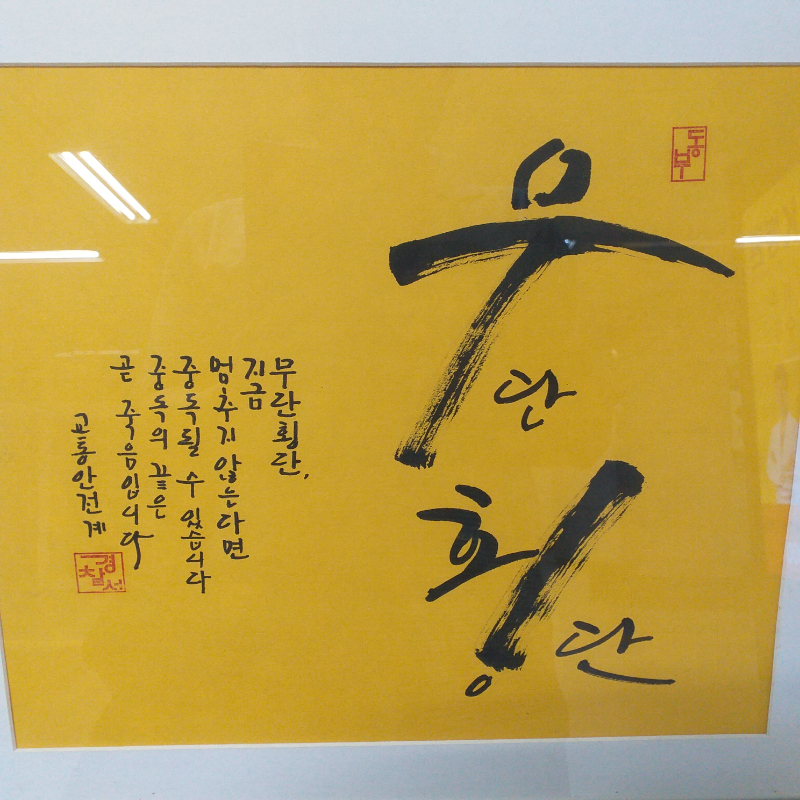 동부
무
단
횡
단
무단횡단,
지금
멈추지 않는다면
중독될 수 있습니다
중독의 끝은
곧 죽음입니다
교통안전계
경찰서